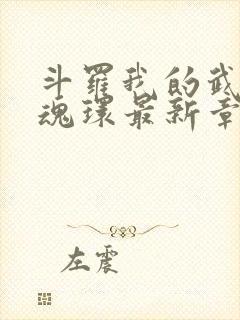 斗罗我的武
魂环最新章
左震